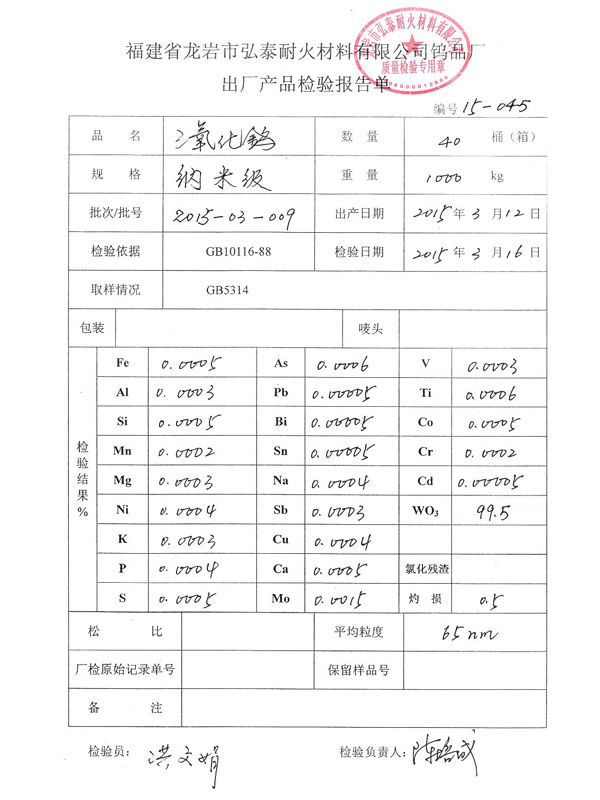 福建省龙岩市弘泰耐火材料有限公司钨品厂
出厂产品检验报告单
质量检验专用章
编号 15-045
品 名 三氧化钨 数 量 40 桶（箱）
规 格 纳米级 重 量 1000 kg
批次/批号 2015-03-009 出产日期 2015 年 3 月 12 日
检验依据 GB10116-88 检验日期 2015 年 3 月 16 日
取样情况 GB5314
包装 唛头
检验结果%
Fe 0.0005 As 0.0006 V 0.0003
Al 0.0003 Pb 0.00005 Ti 0.0006
Si 0.0005 Bi 0.00005 Co 0.0005
Mn 0.0002 Sn 0.00005 Cr 0.0002
Mg 0.0003 Na 0.0004 Cd 0.00005
Ni 0.0004 Sb 0.0003 WO₃ 99.5
K 0.0003 Cu 0.0004
P 0.0004 Ca 0.0005 氯化残渣
S 0.0005 Mo 0.0015 灼 损 0.5
松 比 平均粒度 65nm
厂检原始记录单号 保留样品号
备 注
检验员： 洪文娟 检验负责人：